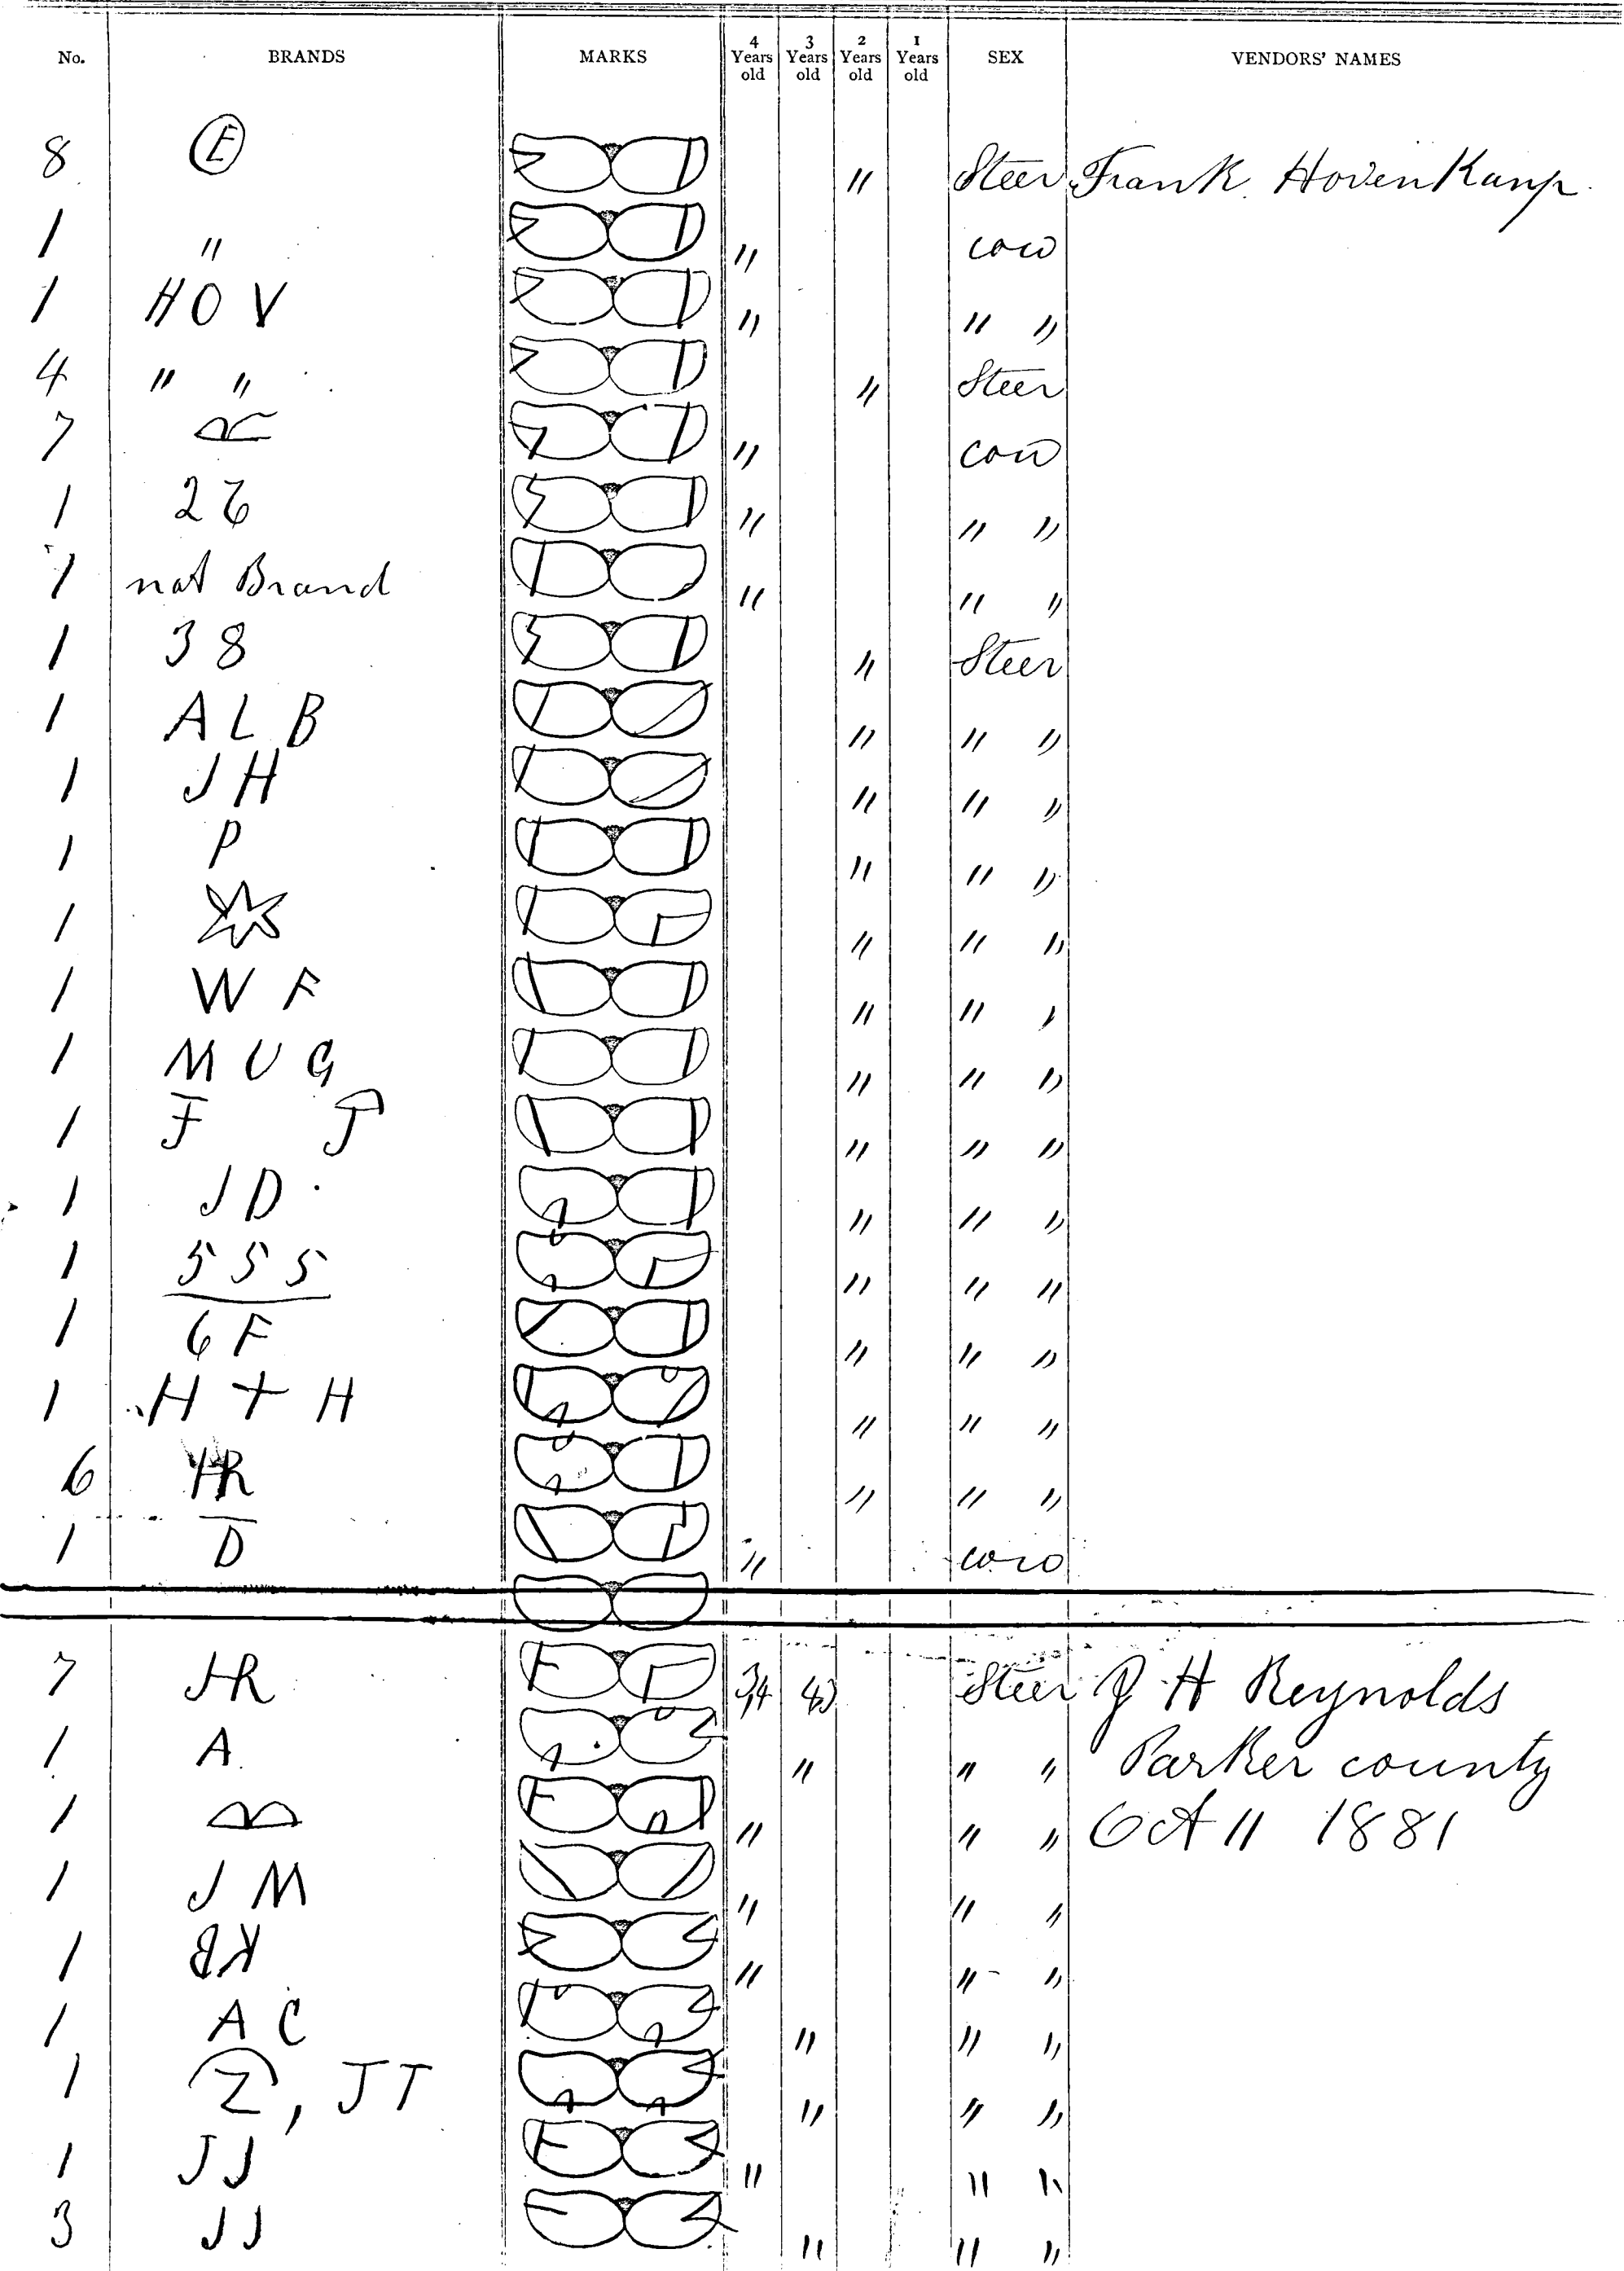 No. BRANDS MARKS 4 Years old 3 Years old 2 Years old 1 Years old SEX VENDORS' NAMES
8 E " Steer Frank HovenKamp.
1 " " cow
1 H O V " " "
4 " " " Steer
7 " cow
1 26 " " "
1 not Brand " " "
1 38 " Steer
1 A L B " " "
1 J H " " "
1 P " " "
1 " " "
1 W F " " "
1 M U G " " "
1 F J " " "
1 J D " " "
1 5 5 5 " " "
1 6 F " " "
1 H + H " " "
6 " " "
1 D " cow
7 JR 3,4 Steer J H Reynolds
1 A. " " " Parker county
1 " " " Oct 11 1881
1 J M " " "
1 " " "
1 A C " " "
1 Z, JT " " "
1 JJ " " "
3 JJ " " "